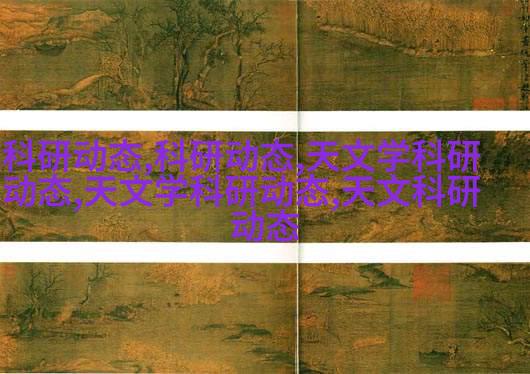 科研动态,科研动态,天文学科研
动态,天文学科研动态,天文科研
动态